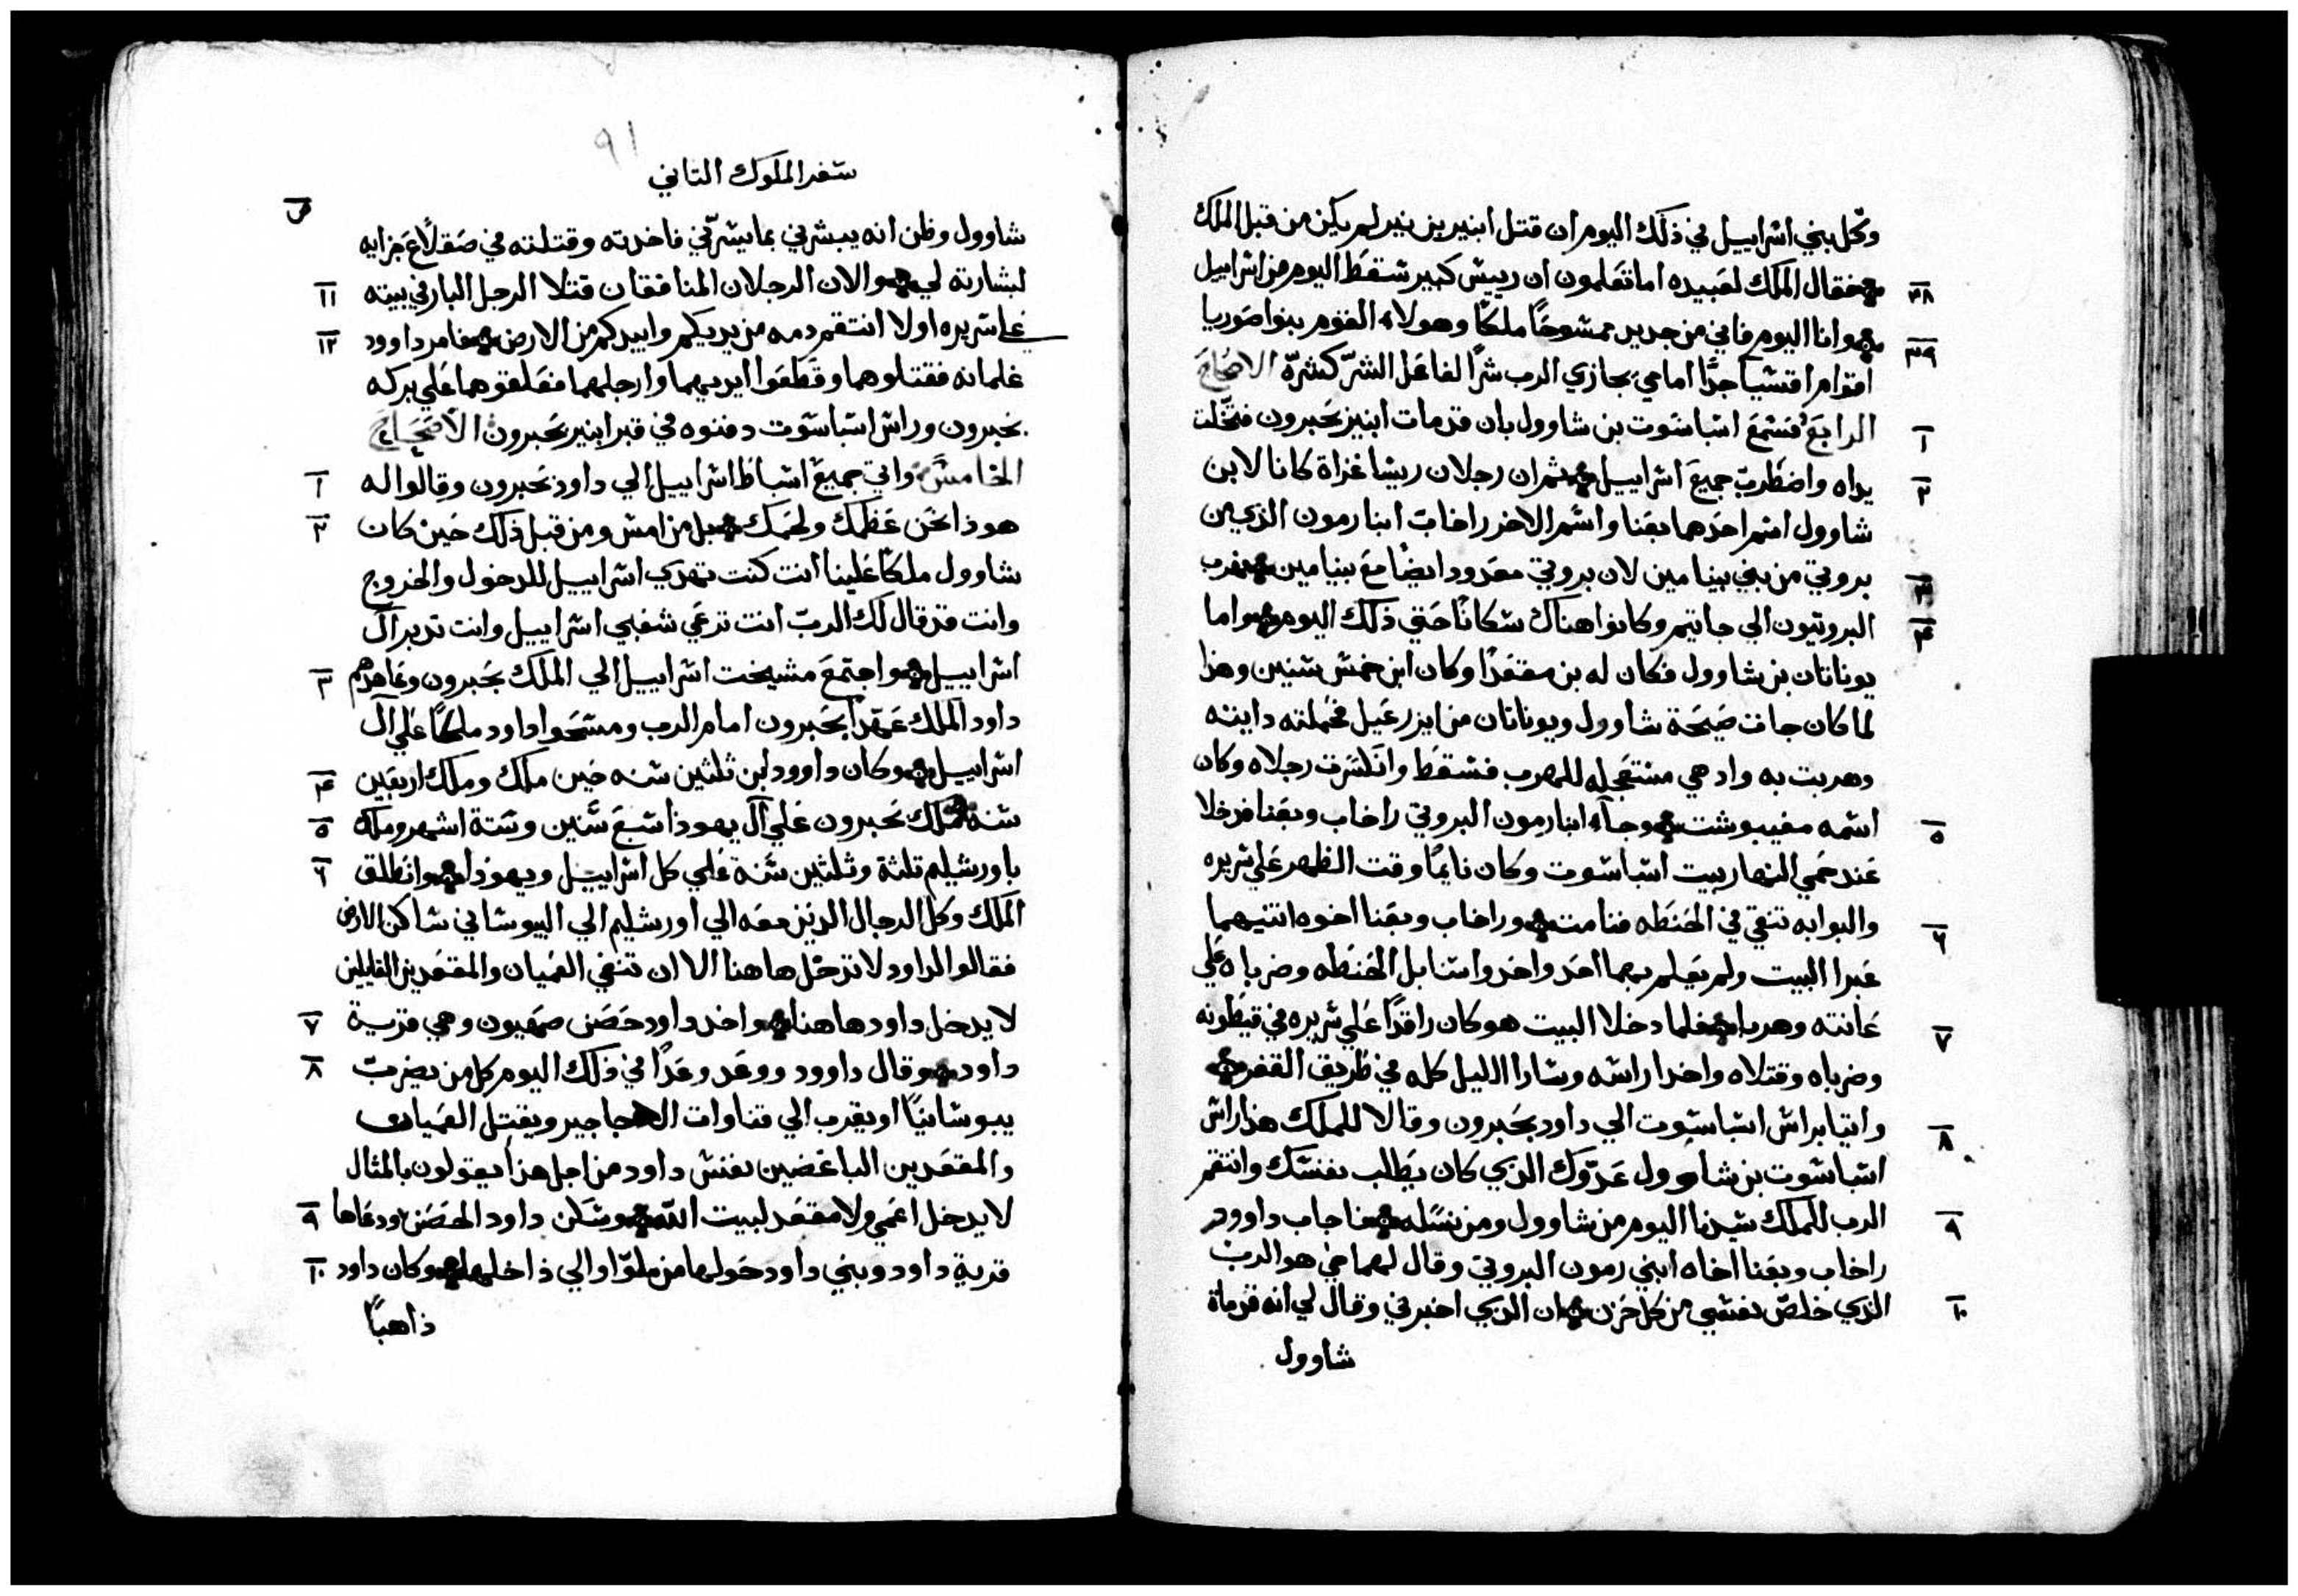 وكل بني اسراييل في ذلك اليوم ان قتل ابنير بن نير لم يكن من قبل الملك
٣٨ فقال الملك لعبيده اما تعلمون ان رييس كبير سقط اليوم من اسراييل
٣٩ وانا اليوم فاني من جديد ممسوحًا ملكًا وهولاء القوم بنوا صوريا
اقوام اقسيا جدًا امامي يجازي الرب شرًا لفاعل الشرّ كشرّه الاصحاح
١ الرابع فسمع اسباسوت بن شاوول بان قد مات ابنير بحبرون فتخلت
٢ يداه واضطرب جميع اسراييل ثم ان رجلان ريسا غزاة كانا لابن
شاوول اسم احدهما بعنا واسم الاخر راخاب ابنا رمون الذي من
٣ بروتي من بني بنيامين لان بروتي معدود ايضًا مع بنيامين فهرب
٤ البروتيون الي جاتيم وكانوا هناك سكانًا حتي ذلك اليوم واما
يوناتان بن شاوول فكان له بن مقعدًا وكان ابن خمس سنين وهذا
لما كان جات صيحة شاوول ويوناتان من ايزرعيل فحملته دايته
وهربت به واذ هي مستعجله للهرب فسقط وانكسرت رجلاه وكان
٥ اسمه مفيبوشت وجاء ابنا رمون البروتي راخاب وبعنا فدخلا
عند حمي النهار بيت اسباسوت وكان نايمًا وقت الظهر علي سريره
٦ والبوابه تنقي في الحنطه فنامت وراخاب وبعنا اخوه اتنيهما
عبرا البيت ولم يعلم بهما احد واخدوا سنابل الحنطه وضرباه علي
٧ عانته وهربا فلما دخلا البيت هو كان راقدًا علي سريره في قيطونه
وضرباه وقتلاه واخدا راسه وسارا الليل كله في طريق القفر
٨ واتيا براس اسباسوت الي داود بحبرون وقالا للملك هذا راس
اسباسوت بن شاوول عدّوك الذي كان يطلب نفسك وانتقم
٩ الرب للملك سيدنا اليوم من شاوول ومن نسله فاجاب داوود
راخاب وبعنا اخاه ابني رمون البروتي وقال لهما حي هو الرب
١٠ الذي خلص نفسي من كل حزن ان الذي اخبرني وقال لي انه قد مات
شاوول
٩١
سفر الملوك التاني
شاوول وظن انه يبشرني بما يسرّني فاخدته وقتلته في صقلاغ جزايه
١١ لبشارته لي والان الرجلان المنافقان قتلا الرجل البار في بيته
١٢ علي سريره اولا انتقم دمه من يديكم وابيدكم من الارض فامر داوود
غلمانه فقتلوهما وقطعوا ايديهما وارجلهما فعلقوهما علي بركه
بحبرون وراس اسباسوت دفنوه في قبر ابنير بحبرون الاصحاح
١ الخامس واتي جميع اسباط اسراييل الي داود بحبرون وقالوا له
٢ هوذا نحن عظمك ولحمك بل من امس ومن قبل ذلك حين كان
شاوول ملكًا علينا انت كنت تهدي اسراييل للدخول والخروج
وانت قد قال لك الربّ انت ترعي شعبي اسراييل وانت تدبر آل
٣ اسراييل واجتمع مشيخت اسراييل الي الملك بحبرون وعاهدهم
داود الملك عهدًا بحبرون امام الرب ومسحوا داود ملكًا علي آل
٤ اسراييل وكان داوود ابن ثلثين سنه حين ملك وملك اربعين
٥ سنه فملك بحبرون علي آل يهوذا سبع سنين وستة اشهر وملك
٦ باورشليم تلثة وثلثين سنة علي كل اسراييل ويهوذا وانطلق
الملك وكل الرجال الدين معه الي اورشليم الي اليبوساني ساكن الارض
فقالوا لداود لا تدخل هاهنا الا ان تنفي العميان والمقعدين القايلين
٧ لا يدخل داود هاهنا واخد داود حصن صهيون وهي قرية
٨ داود وقال داوود ووعد وعدًا في ذلك اليوم كل من يضرب
يبوسانيًا او يقرب الي قناوات الاجاجير ويقتل العميان
والمقعدين الباغضين نفس داود من اجل هذا يقولون بالمثال
٩ لا يدخل اعمي ولا مقعد لبيت الله وسكن داود الحصن ودعاها
١٠ قرية داود وبني داود حولها من ملوّا والي داخلها وكان داود
ذاهبًا